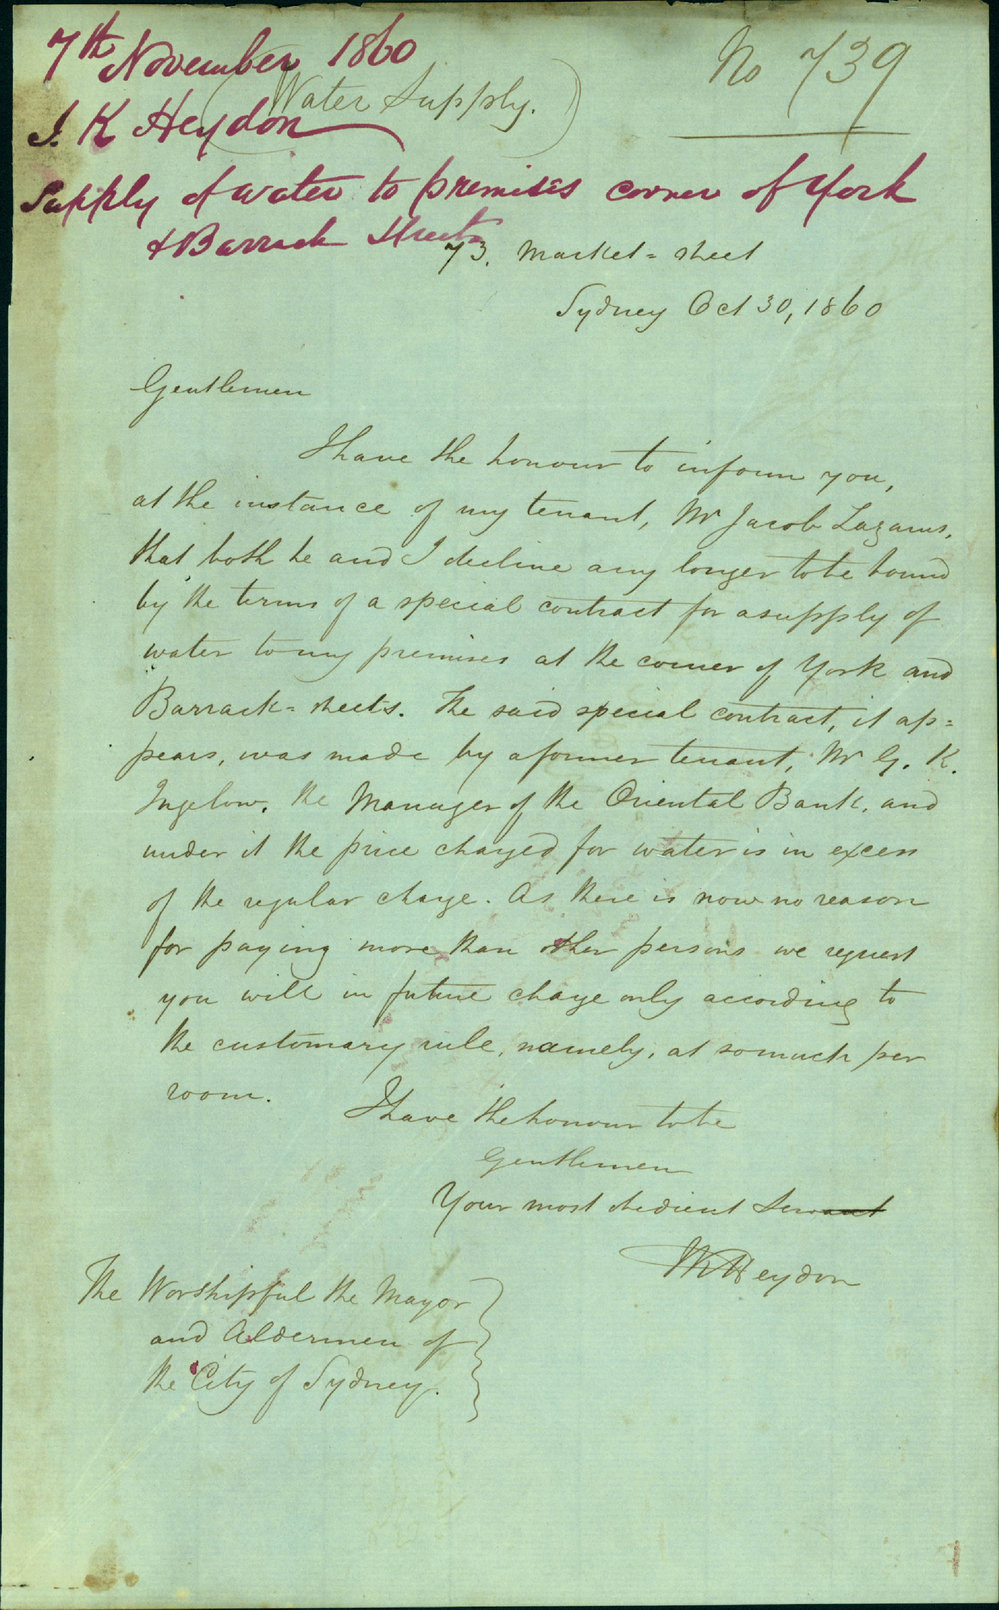 7th November 1860
No 739
(Water Supply.)
J. K Heydon
Supply of water to premises corner of York
& Barrack Streets
73, Market-street
Sydney Oct 30, 1860
Gentlemen
I have the honour to inform you,
at the instance of my tenant, Mr Jacob Lazarus,
that both he and I decline any longer to be bound
by the terms of a special contract for a supply of
water to my premises at the corner of York and
Barrack=streets. The said special contract, it ap=
pears, was made by a former tenant, Mr G. K.
Ingelow, the Manager of the Oriental Bank, and
under it the price charged for water is in excess
of the regular charge. As there is now no reason
for paying more than other persons we request
you will in future charge only according to
the customary rule, namely, at so much per
room.
I have the honour to be
Gentlemen
Your most obedient Servant
JK Heydon
The Worshipful the Mayor
and Aldermen of
the City of Sydney.